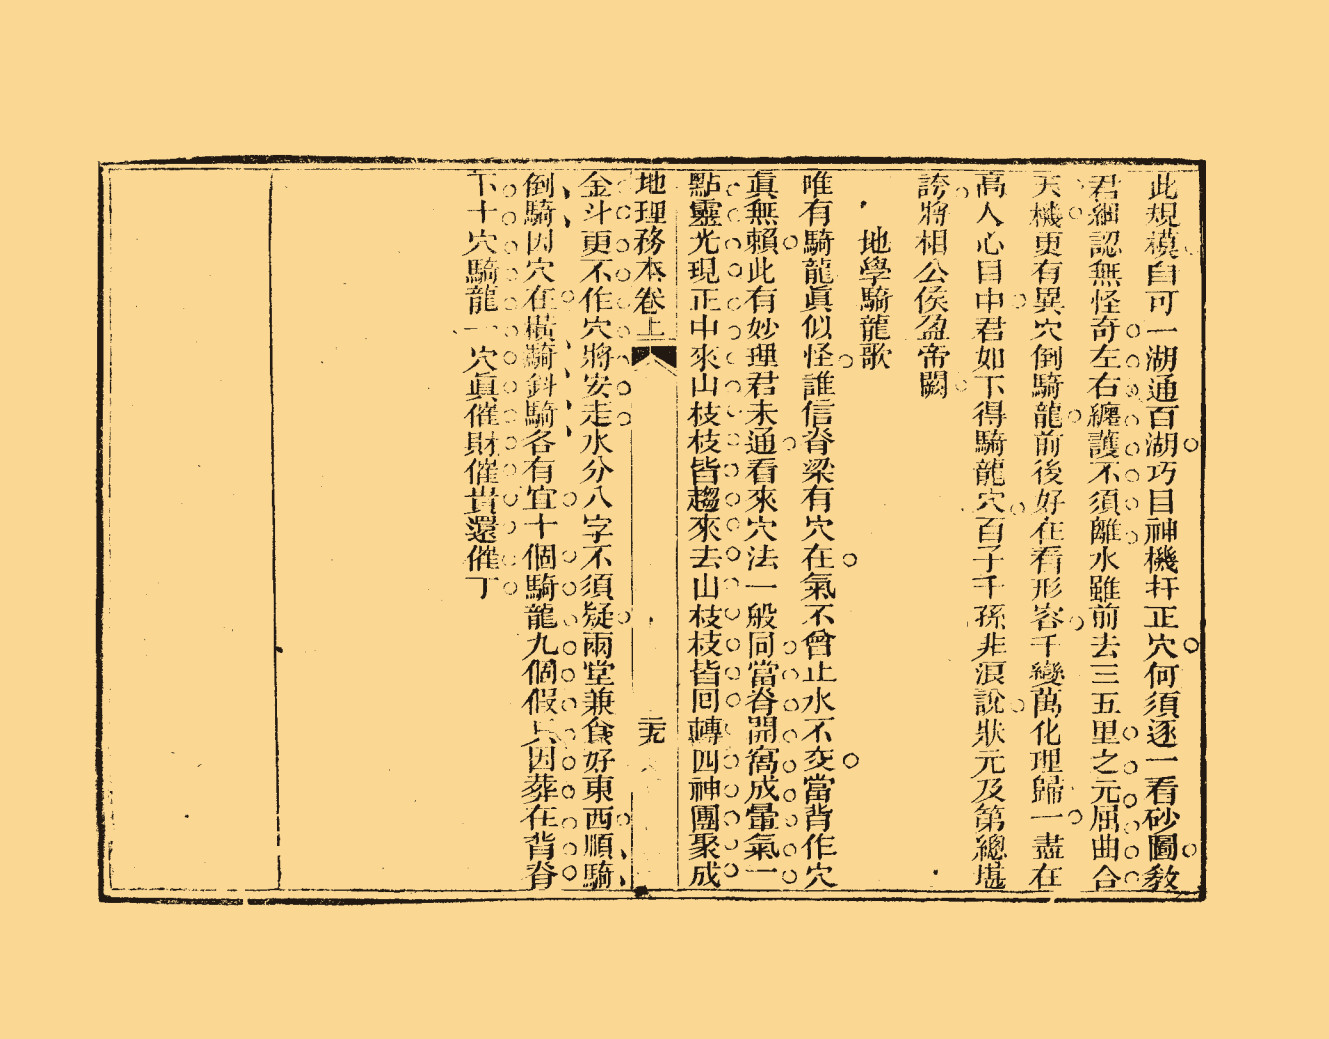 此規模自可一湖通百湖巧目神機扞正穴何須逐一看砂圖教
君細認無怪奇左右纏護不須離水雖前去三五里之元屈曲合
天機更有異穴倒騎龍前後好在看形容千變萬化理歸一盡在
高人心目中君如下得騎龍穴百子千孫非浪說狀元及第總堪
誇將相公侯盈帝闕
地學騎龍歌
唯有騎龍眞似怪誰信脊梁有穴在氣不曾止水不交當背作穴
眞無賴此有妙理君未通看來穴法一般同當脊開窩成暈氣一
點靈光現正中來山枝枝皆趨來去山枝枝皆回轉四神團聚成
地理務本卷上
三九
金斗更不作穴將安走水分八字不須疑兩堂兼食好東西順騎
倒騎因穴在橫騎斜騎各有宜十個騎龍九個假只因葬在背脊
下十穴騎龍一穴眞催財催貴還催丁